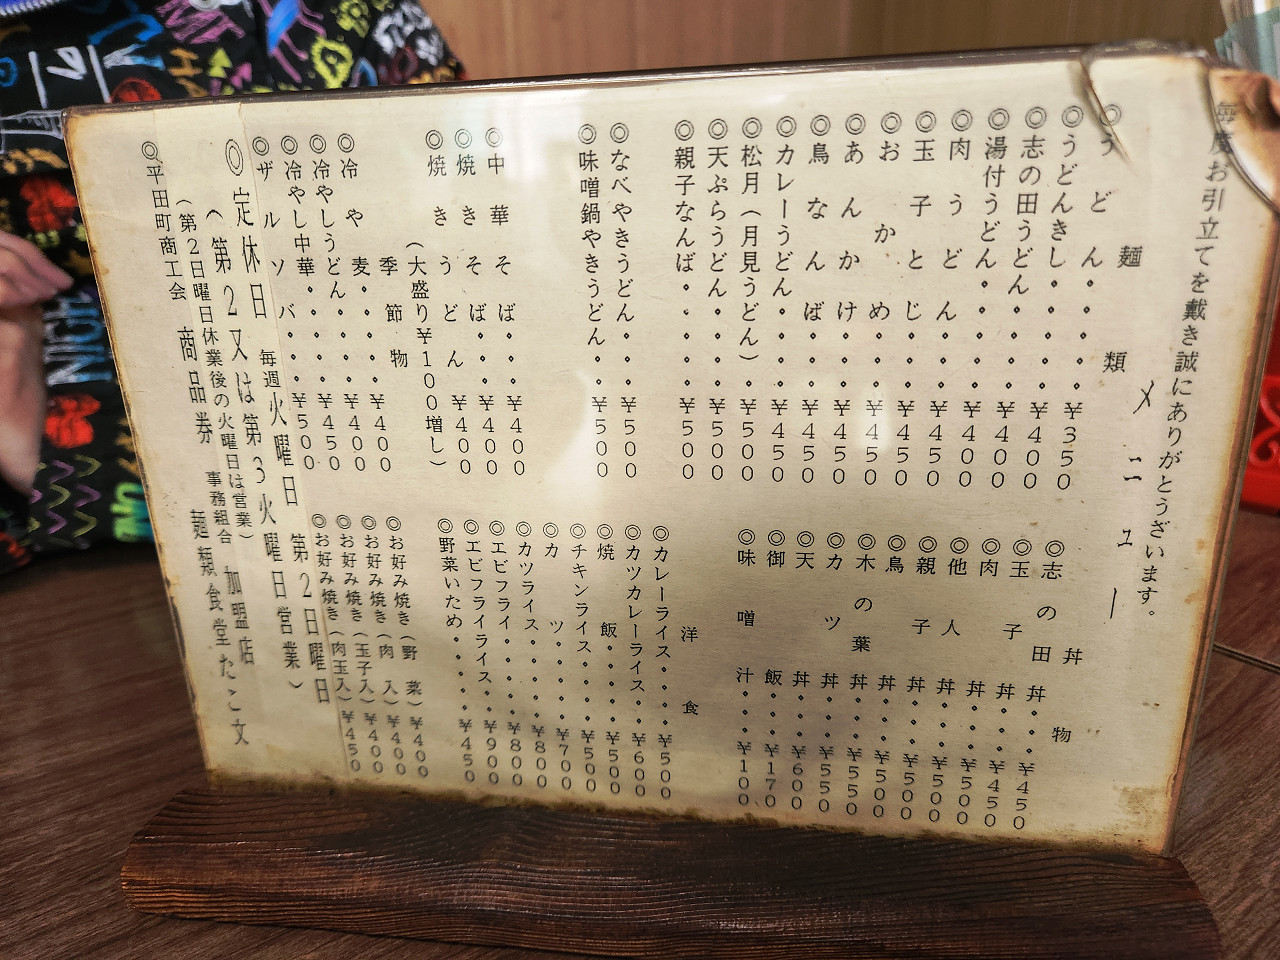 毎度お引立てを戴き誠にありがとうざいます。
メニュー
麺類
◎うどん・・・¥350
◎うどんきし・・・¥400
◎志の田うどん・・・¥400
◎湯付うどん・・・¥400
◎肉うどん・・・¥450
◎玉子とじ・・・¥450
◎おかめ・・・¥450
◎あんかけ・・・¥450
◎鳥なんば・・・¥450
◎カレーうどん・・・¥450
◎松月(月見うどん)¥500
◎天ぷらうどん・・・¥500
◎親子なんば・・・¥500
◎なべやきうどん・・・¥500
◎味噌鍋やきうどん・¥500
◎中華そば・・・¥400
◎焼きそば・・・¥400
◎焼きうどん ¥400
(大盛り¥100増し)
季節物
◎冷や麦・・・¥400
◎冷やしうどん・・・¥400
◎冷やし中華・・・¥450
◎ザルソバ・・・¥500
丼物
◎志の田丼・・・¥450
◎玉子丼・・・¥450
◎肉丼・・・¥500
◎他人丼・・・¥500
◎親子丼・・・¥500
◎鳥丼・・・¥500
◎木の葉丼・・・¥550
◎カツ丼・・・¥550
◎天丼・・・¥600
◎御飯・・・¥170
◎味噌汁・・・¥100
洋食
◎カレーライス・・・¥500
◎カツカレーライス・・¥600
◎焼飯・・・¥500
◎チキンライス・・・¥500
◎カツ・・・¥700
◎カツライス・・・¥800
◎エビフライ・・・¥800
◎エビフライライス・・¥900
◎野菜いため・・・¥450
◎お好み焼き(野菜)¥400
◎お好み焼き(肉入)¥400
◎お好み焼き(玉子入)¥400
◎お好み焼き(肉玉入)¥450
◎定休日 毎週火曜日 第2日曜日
(第2又は第3火曜日営業)
(第2日曜日休業後の火曜日は営業)
◎平田町商工会 商品券 事務組合 加盟店
麺類食堂たこ文